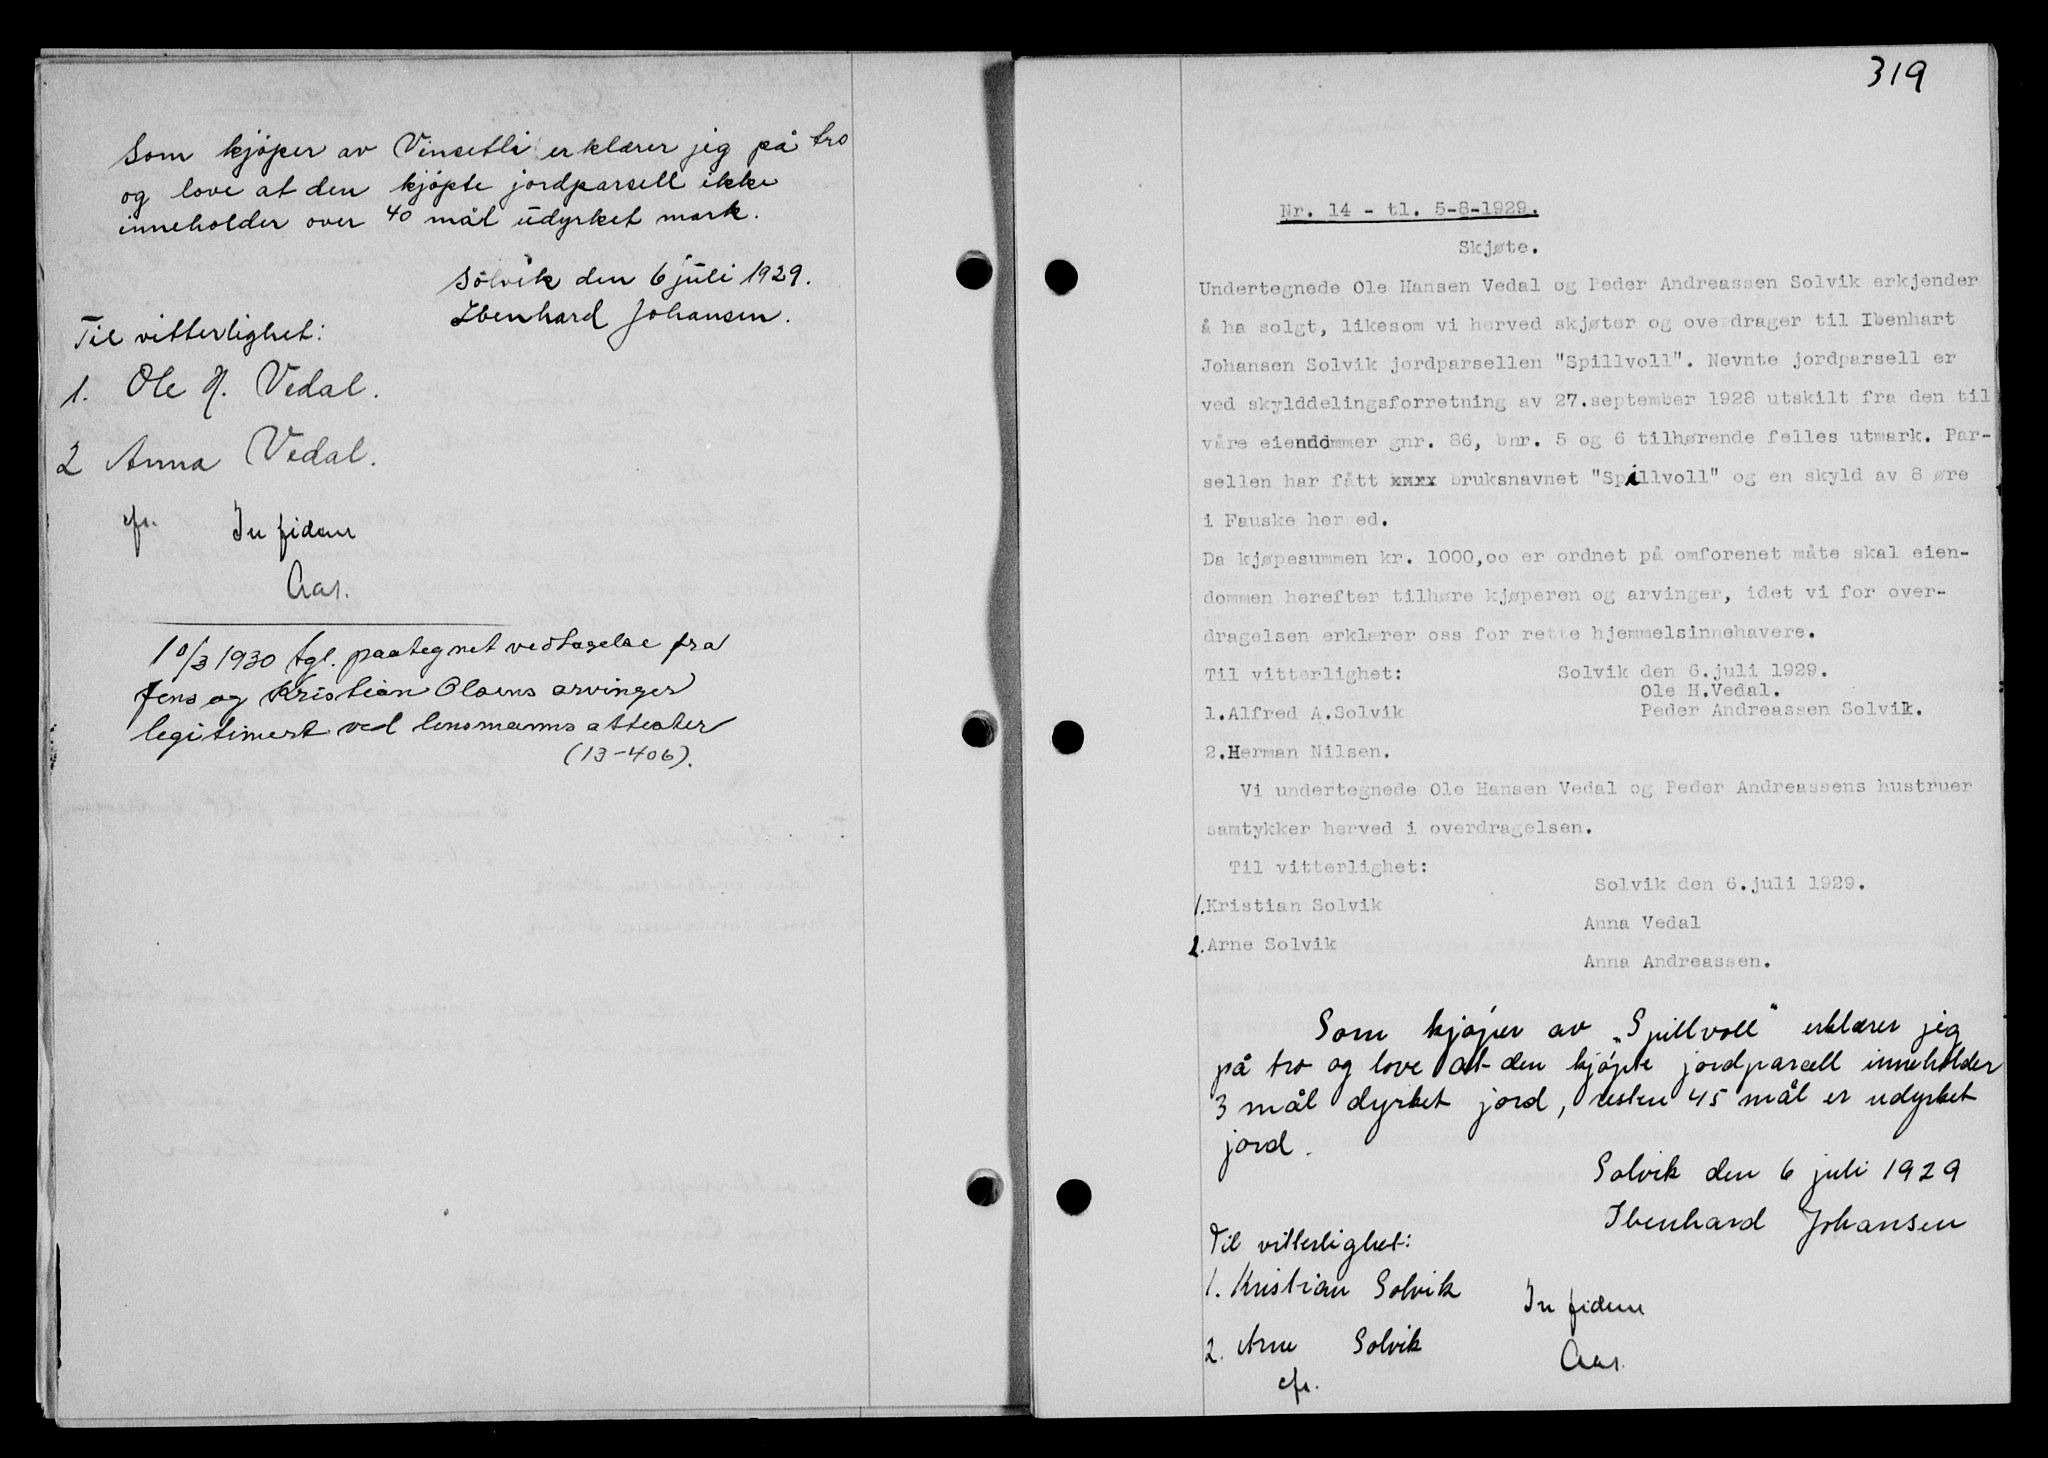 Som kjøper av Vinsetli erklærer jeg på tro
og love at den kjøpte jordparsell ikke
inneholder over 40 mål udyrket mark.
Solvik den 6 juli 1929.
Ibenhard Johansen.
Til vitterlighet:
1. Ole H. Vedal.
2 Anna Vedal.
cfr. In fidem
Aas.
10/3 1930 tgl. paategnet vedtagelse fra
Jens og Kristian Olsens arvinger
legitimert ved lensmanns attester
(13-406).
319
Nr. 14 - tl. 5-8-1929.
Skjøte.
Undertegnede Ole Hansen Vedal og Peder Andreassen Solvik erkjender
å ha solgt, likesom vi herved skjøter og overdrager til Ibenhart
Johansen Solvik jordparsellen "Spillvoll". Nevnte jordparsell er
ved skylddelingsforretning av 27.september 1928 utskilt fra den til
våre eienddmmer gnr. 86, bnr. 5 og 6 tilhørende felles utmark. Par-
sellen har fått xxxx bruksnavnet "Spillvoll" og en skyld av 8 øre
i Fauske herred.
Da kjøpesummen kr. 1000,oo er ordnet på omforenet måte skal eien-
dommen herefter tilhøre kjøperen og arvinger, idet vi for over-
dragelsen erklærer oss for rette hjemmelsinnehavere.
Til vitterlighet: Solvik den 6.juli 1929.
Ole H.Vedal.
1.Alfred A.Solvik Peder Andreassen Solvik.
2.Herman Nilsen.
Vi undertegnede Ole Hansen Vedal og Peder Andreassens hustruer
samtykker herved i overdragelsen.
Til vitterlighet:
Solvik den 6.juli 1929.
1.Kristian Solvik
Anna Vedal
2.Arne Solvik
Anna Andreassen.
Som kjøper av "Spillvoll" erklærer jeg
på tro og love at den kjøpte jordparsell inneholder
3 mål dyrket jord, resten 45 mål er udyrket
jord.
Solvik den 6 juli 1929
Ibenhard Johansen
Til vitterlighet:
1. Kristian Solvik
In fidem
2. Arne Solvik
Aas.
cfr.